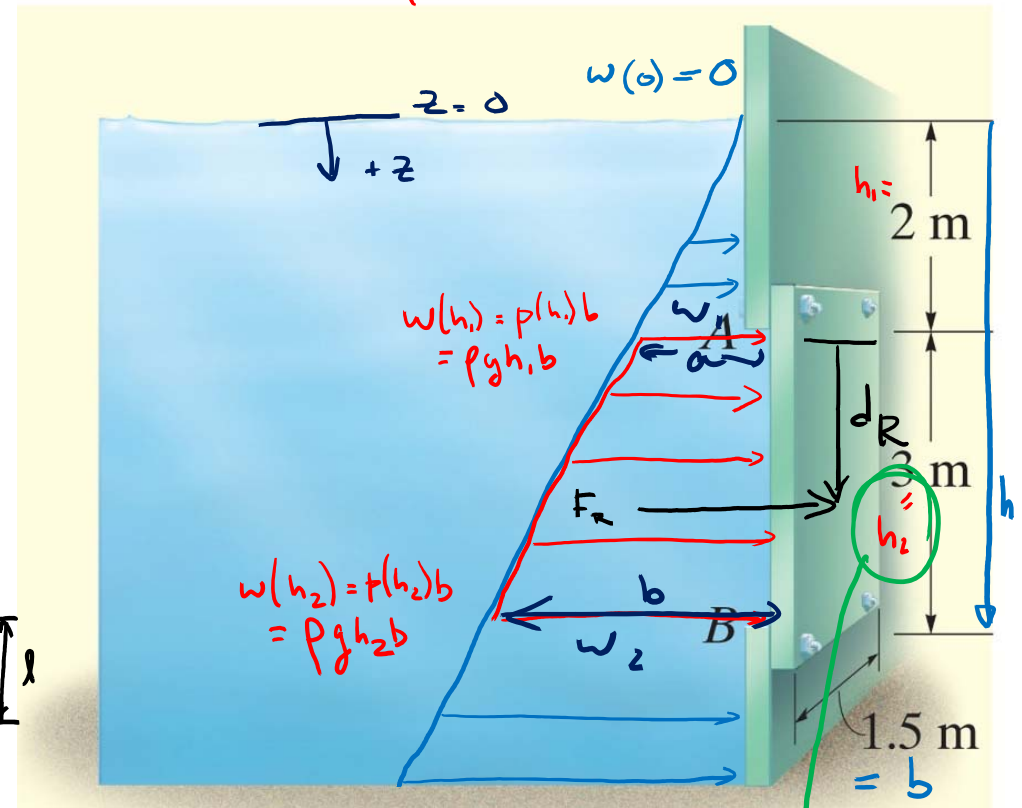 w(0) = 0
z = 0
+ z
h₁ =
2 m
w(h₁) = p(h₁)b
= ρgh₁b
w₁
A
a
d_R
3 m
=
h₂
h
F_R
w(h₂) = p(h₂)b
= ρgh₂b
b
B
w₂
l
1.5 m
= b